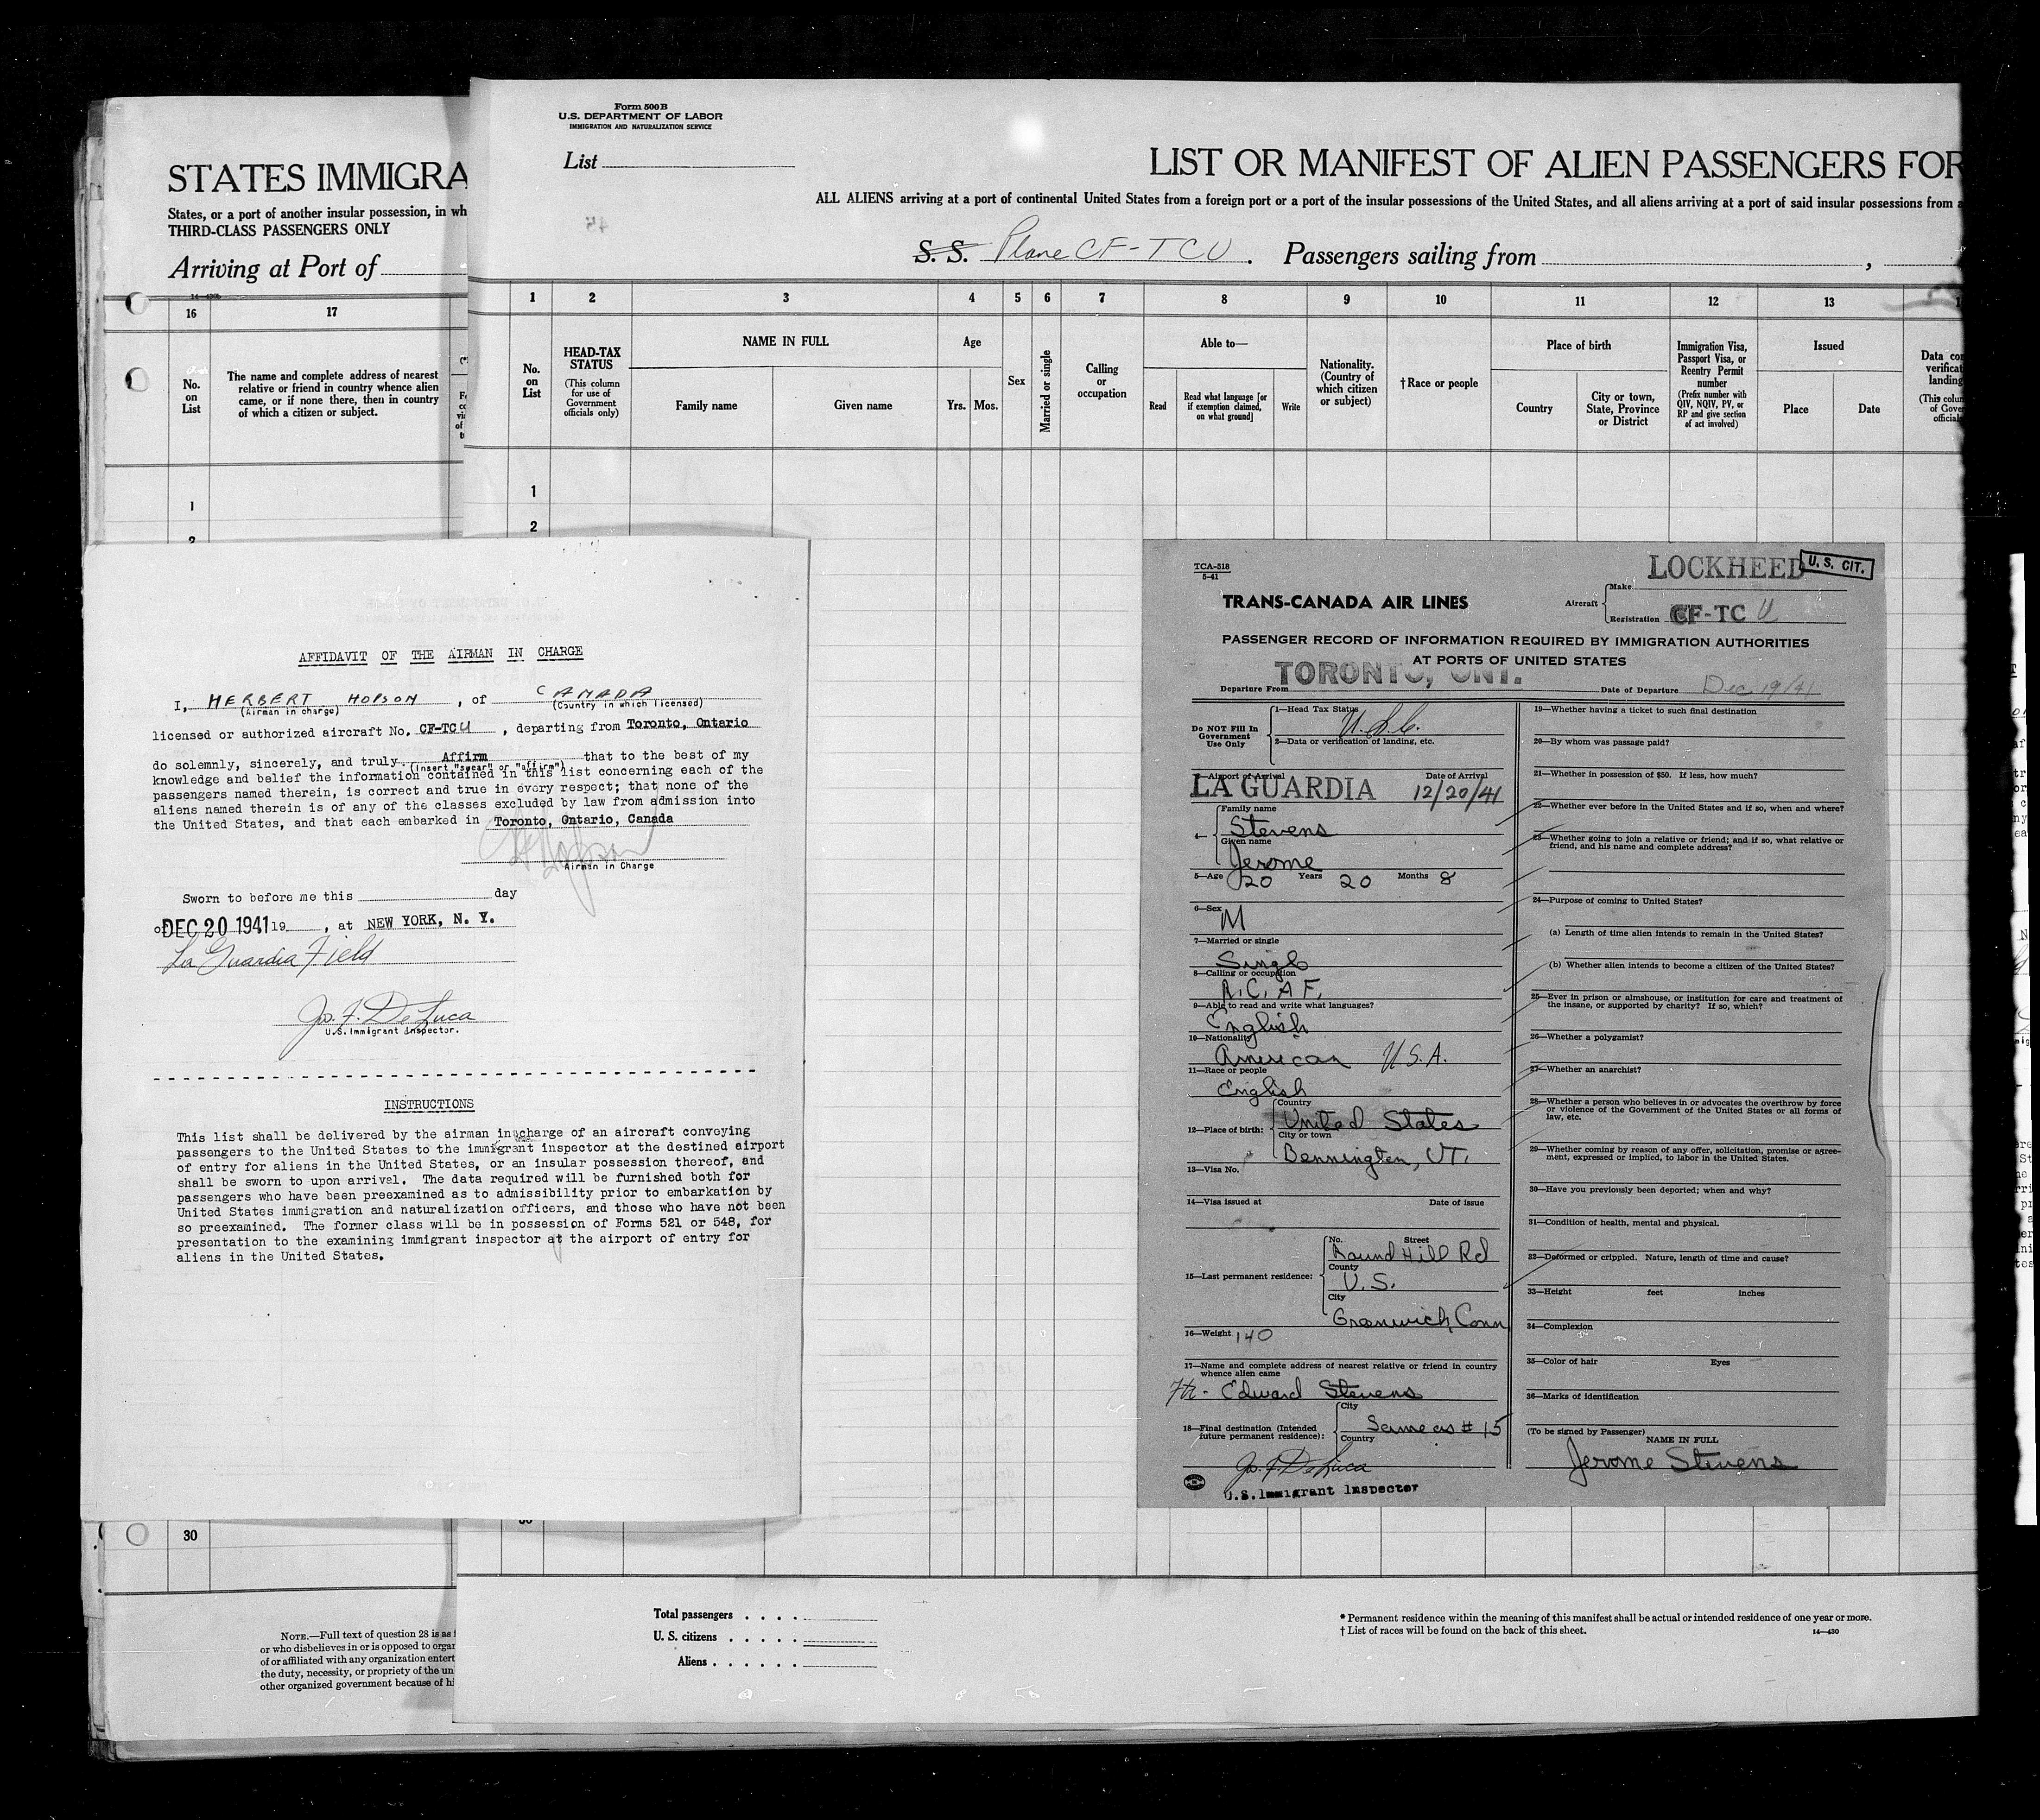 STATES IMMIGRA
States, or a port of another insular possession, in wh
THIRD-CLASS PASSENGERS ONLY
Arriving at Port of
16
17
No. on List
The name and complete address of nearest
relative or friend in country whence alien
came, or if none there, then in country
of which a citizen or subject.
1
2
30
NOTE.—Full text of question 28 is as f
or who disbelieves in or is opposed to organ
of or affiliated with any organization entert
the duty, necessity, or propriety of the un
other organized government because of hi
Form 500 B
U.S. DEPARTMENT OF LABOR
IMMIGRATION AND NATURALIZATION SERVICE
List
LIST OR MANIFEST OF ALIEN PASSENGERS FOR
ALL ALIENS arriving at a port of continental United States from a foreign port or a port of the insular possessions of the United States, and all aliens arriving at a port of said insular possessions from a
S. S. Plane CF-TCU. Passengers sailing from ,
1 2 3 4 5 6 7 8 9 10 11 12 13
No. on List
HEAD-TAX STATUS
(This column for use of Government officials only)
NAME IN FULL
Family name
Given name
Age
Yrs. Mos.
Sex
Married or single
Calling or occupation
Able to—
Read
Read what language [or if exemption claimed, on what ground]
Write
Nationality. (Country of which citizen or subject)
†Race or people
Place of birth
Country
City or town, State, Province or District
Immigration Visa, Passport Visa, or Reentry Permit number
(Prefix number with QIV, NQIV, PV, or RP and give section of act involved)
Issued
Place
Date
Data co
verificat
landing
(This colum
of Gove
official
1
2
Total passengers . . . .
U. S. citizens . . . . .
Aliens . . . . . .
* Permanent residence within the meaning of this manifest shall be actual or intended residence of one year or more.
† List of races will be found on the back of this sheet.
14—430
AFFIDAVIT OF THE AIRMAN IN CHARGE
I, HERBERT HOPSON, of CANADA
(Airman in charge) (Country in which licensed)
licensed or authorized aircraft No. CF-TCU, departing from Toronto, Ontario
do solemnly, sincerely, and truly Affirm that to the best of my
(insert "swear" or "affirm")
knowledge and belief the information contained in this list concerning each of the
passengers named therein, is correct and true in every respect; that none of the
aliens named therein is of any of the classes excluded by law from admission into
the United States, and that each embarked in Toronto, Ontario, Canada
Airman in Charge
Sworn to before me this day
of DEC 20 1941 19 , at NEW YORK, N. Y.
La Guardia Field
Jos. F. DeLuca
U.S. Immigrant Inspector.
INSTRUCTIONS
This list shall be delivered by the airman in charge of an aircraft conveying
passengers to the United States to the immigrant inspector at the destined airport
of entry for aliens in the United States, or an insular possession thereof, and
shall be sworn to upon arrival. The data required will be furnished both for
passengers who have been preexamined as to admissibility prior to embarkation by
United States immigration and naturalization officers, and those who have not been
so preexamined. The former class will be in possession of Forms 521 or 548, for
presentation to the examining immigrant inspector at the airport of entry for
aliens in the United States.
TCA-518
5-41
LOCKHEED
U. S. CIT.
TRANS-CANADA AIR LINES
Aircraft
Make
Registration CF-TC U
PASSENGER RECORD OF INFORMATION REQUIRED BY IMMIGRATION AUTHORITIES
AT PORTS OF UNITED STATES
Departure From TORONTO, ONT. Date of Departure Dec 19/41
Do NOT Fill In
Government
Use Only
1—Head Tax Status U.S.C.
2—Data or verification of landing, etc.
3—Airport of Arrival Date of Arrival
LA GUARDIA 12/20/41
4— Family name
Stevens
Given name
Jerome
5—Age 20 Years 20 Months 8
6—Sex M
7—Married or single
Single
8—Calling or occupation
R.C.A.F.
9—Able to read and write what languages?
English
10—Nationality
American U.S.A.
11—Race or people
English
12—Place of birth: Country
United States
City or town
Bennington, VT.
13—Visa No.
14—Visa issued at Date of issue
15—Last permanent residence: No. Street
Round Hill Rd
County
U.S.
City
Greenwich, Conn
16—Weight 140
17—Name and complete address of nearest relative or friend in country
whence alien came
Fth- Edward Stevens
18—Final destination (Intended
future permanent residence): City
Same as # 15
Country
Jos. F. DeLuca
U.S. Immigrant Inspector
19—Whether having a ticket to such final destination
20—By whom was passage paid?
21—Whether in possession of $50. If less, how much?
22—Whether ever before in the United States and if so, when and where?
23—Whether going to join a relative or friend; and if so, what relative or
friend, and his name and complete address?
24—Purpose of coming to United States?
(a) Length of time alien intends to remain in the United States?
(b) Whether alien intends to become a citizen of the United States?
25—Ever in prison or almshouse, or institution for care and treatment of
the insane, or supported by charity? If so, which?
26—Whether a polygamist?
27—Whether an anarchist?
28—Whether a person who believes in or advocates the overthrow by force
or violence of the Government of the United States or all forms of
law, etc.
29—Whether coming by reason of any offer, solicitation, promise or agree-
ment, expressed or implied, to labor in the United States.
30—Have you previously been deported; when and why?
31—Condition of health, mental and physical.
32—Deformed or crippled. Nature, length of time and cause?
33—Height feet inches
34—Complexion
35—Color of hair Eyes
36—Marks of identification
(To be signed by Passenger)
NAME IN FULL
Jerome Stevens